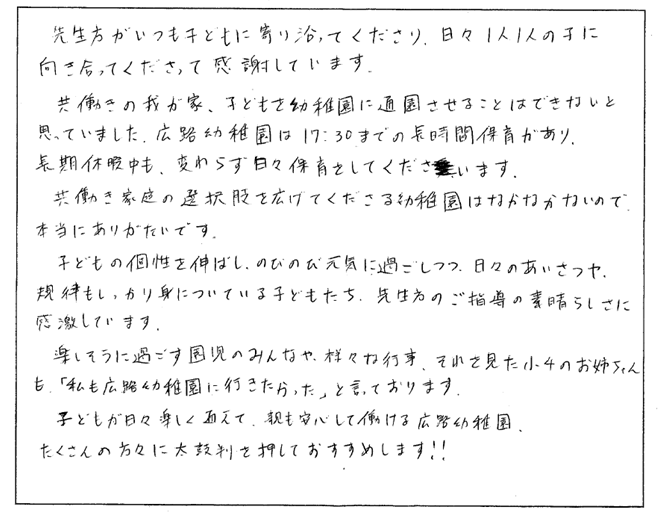 先生方がいつも子どもに寄り沿ってくださり、日々1人1人の子に
向き合ってくださって感謝しています。
共働きの我が家、子どもを幼稚園に通園させることはできないと
思っていました。広路幼稚園は17:30までの長時間保育があり、
長期休暇中も、変わらず日々保育をしてくださいます。
共働き家庭の選択肢を広げてくださる幼稚園はなかなかないので、
本当にありがたいです。
子どもの個性を伸ばし、のびのび元気に過ごしつつ、日々のあいさつや、
規律もしっかり身についている子どもたち、先生方のご指導の素晴らしさに
感激しています。
楽しそうに過ごす園児のみんなや、様々な行事、それを見た小4のお姉ちゃん
も、「私も広路幼稚園に行きたかった」と言っております。
子どもが日々楽しく通えて、親も安心して働ける広路幼稚園、
たくさんの方々に太鼓判を押しておすすめします!!